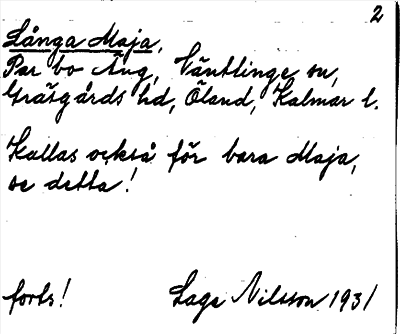 2
Långa Maja,
Par bo Äng, Ventlinge sn,
Gräsgårds hd, Öland, Kalmar l.
Kallas också för bara Maja,
se detta!
forts! Sage Nilsson 1931